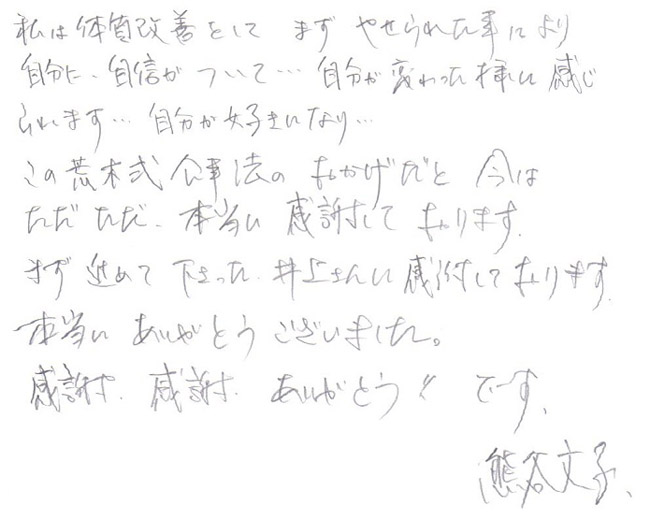 私は体質改善をして まず やせられた事により
自分に、自信が ついて… 自分が 変わった様に 感じ
られます… 自分が好きになり…
この荒木式 食事法の おかげだと 今は
ただ ただ、本当に 感謝して おります。
まず 進めて 下さった、井上さんに 感謝しております。
本当に ありがとう ございました。
感謝、感謝、ありがとう!! です、
熊谷文子、